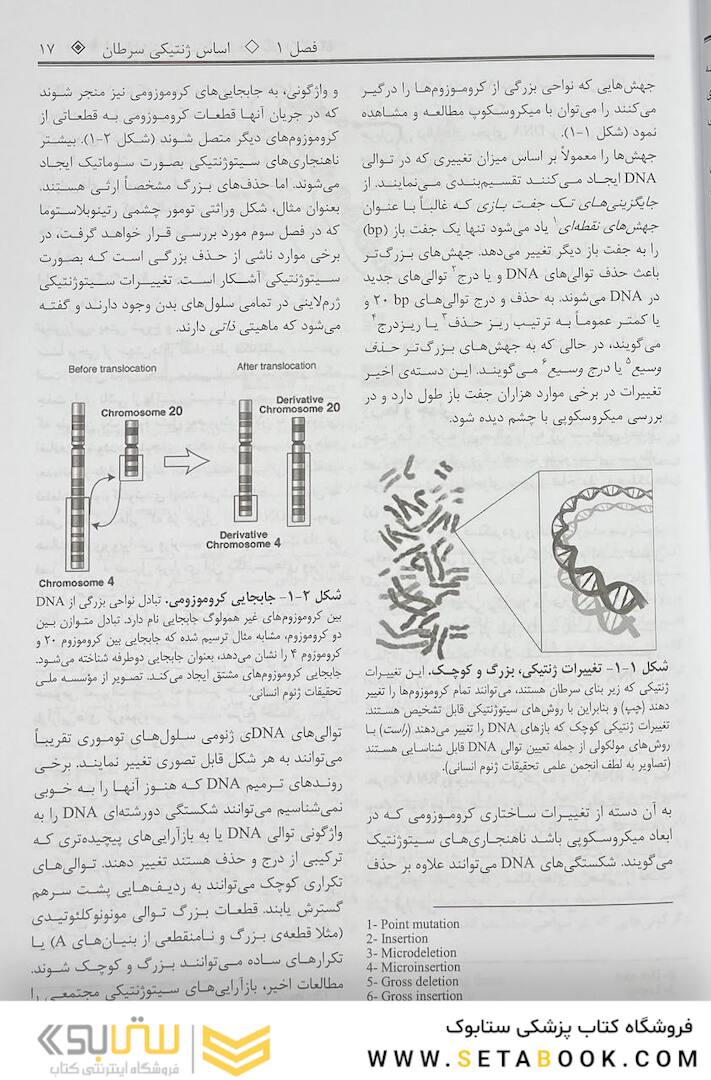 فصل ۱ ◇ اساس ژنتیکی سرطان ۱۷
جهش‌هایی که نواحی بزرگی از کروموزوم‌ها را درگیر
می‌کنند را می‌توان با میکروسکوپ مطالعه و مشاهده
نمود (شکل ۱-۱).
جهش‌ها را معمولاً بر اساس میزان تغییری که در توالی
DNA ایجاد می‌کنند تقسیم‌بندی می‌نمایند. از
جایگزینی‌های تک جفت بازی که غالباً با عنوان
جهش‌های نقطه‌ای۱ یاد می‌شود تنها یک جفت باز (bp)
را به جفت باز دیگر تغییر می‌دهد. جهش‌های بزرگ‌تر
باعث حذف توالی‌های DNA و یا درج۲ توالی‌های جدید
در DNA می‌شوند. به حذف و درج توالی‌های ۲۰ bp و
یا کمتر عموماً به ترتیب ریز حذف۳ یا ریزدرج۴
می‌گویند، در حالی که به جهش‌های بزرگ‌تر حذف
وسیع۵ یا درج وسیع۶ می‌گویند. این دسته‌ی اخیر
تغییرات در برخی موارد هزاران جفت باز طول دارد و در
بررسی میکروسکوپی با چشم دیده شود.
شکل ۱-۱- تغییرات ژنتیکی، بزرگ و کوچک. این تغییرات
ژنتیکی که زیر بنای سرطان هستند، می‌توانند تمام کروموزوم‌ها را تغییر
دهند (چپ) و بنابراین با روش‌های سیتوژنتیکی قابل تشخیص هستند.
تغییرات ژنتیکی کوچک که بازهای DNA را تغییر می‌دهند (راست) با
روش‌های مولکولی از جمله تعیین توالی DNA قابل شناسایی هستند
(تصاویر به لطف انجمن علمی تحقیقات ژنوم انسانی).
به آن دسته از تغییرات ساختاری کروموزومی که در
ابعاد میکروسکوپی باشد ناهنجاری‌های سیتوژنتیک
می‌گویند. شکستگی‌های DNA می‌توانند علاوه بر حذف
1- Point mutation
2- Insertion
3- Microdeletion
4- Microinsertion
5- Gross deletion
6- Gross insertion
و واژگونی، به جابجایی‌های کروموزومی نیز منجر شوند
که در جریان آنها قطعات کروموزومی به قطعاتی از
کروموزوم‌های دیگر متصل شوند (شکل ۲-۱). بیشتر
ناهنجاری‌های سیتوژنتیکی بصورت سوماتیک ایجاد
می‌شوند. اما حذف‌های بزرگ مشخصاً ارثی هستند.
بعنوان مثال، شکل وراثتی تومور چشمی رتینوبلاستوما
که در فصل سوم مورد بررسی قرار خواهد گرفت، در
برخی موارد ناشی از حذف بزرگی است که بصورت
سیتوژنتیکی آشکار است. تغییرات سیتوژنتیکی
ژرم‌لاینی در تمامی سلول‌های بدن وجود دارند و گفته
می‌شود که ماهیتی ذاتی دارند.
Before translocation
After translocation
Chromosome 20
Derivative
Chromosome 20
Derivative
Chromosome 4
Chromosome 4
شکل ۲-۱- جابجایی کروموزومی. تبادل نواحی بزرگی از DNA
بین کروموزوم‌های غیر همولوگ جابجایی نام دارد. تبادل متوازن بین
دو کروموزوم، مشابه مثال ترسیم شده که جابجایی بین کروموزوم ۲۰ و
کروموزوم ۴ را نشان می‌دهد، بعنوان جابجایی دوطرفه شناخته می‌شود.
جابجایی کروموزوم‌های مشتق ایجاد می‌کند. تصویر از مؤسسه ملی
تحقیقات ژنوم انسانی.
توالی‌های DNAی ژنومی سلول‌های توموری تقریباً
می‌توانند به هر شکل قابل تصوری تغییر نمایند. برخی
روندهای ترمیم DNA که هنوز آنها را به خوبی
نمی‌شناسیم می‌توانند شکستگی دورشته‌ای DNA را به
واژگونی توالی DNA یا به بازآرایی‌های پیچیده‌تری که
ترکیبی از درج و حذف هستند تغییر دهند. توالی‌های
تکراری کوچک می‌توانند به ردیف‌هایی پشت سرهم
گسترش یابند. قطعات بزرگ توالی مونونوکلئوتیدی
(مثلا قطعه‌ی بزرگ و نامنقطعی از بنیان‌های A) یا
تکرارهای ساده می‌توانند بزرگ و کوچک شوند.
مطالعات اخیر، بازآرایی‌های سیتوژنتیکی مجتمعی را
فروشگاه کتاب پزشکی ستابوک
WWW.SETABOOK.COM
ستابوک
فروشگاه اینترنتی کتاب